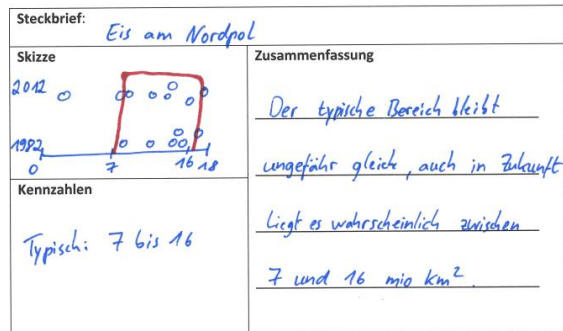 Steckbrief:
Eis am Nordpol
Skizze
2012
1982
0 7 16 18
Kennzahlen
Typisch: 7 bis 16
Zusammenfassung
Der typische Bereich bleibt
ungefähr gleich, auch in Zukunft
liegt es wahrscheinlich zwischen
7 und 16 mio km².